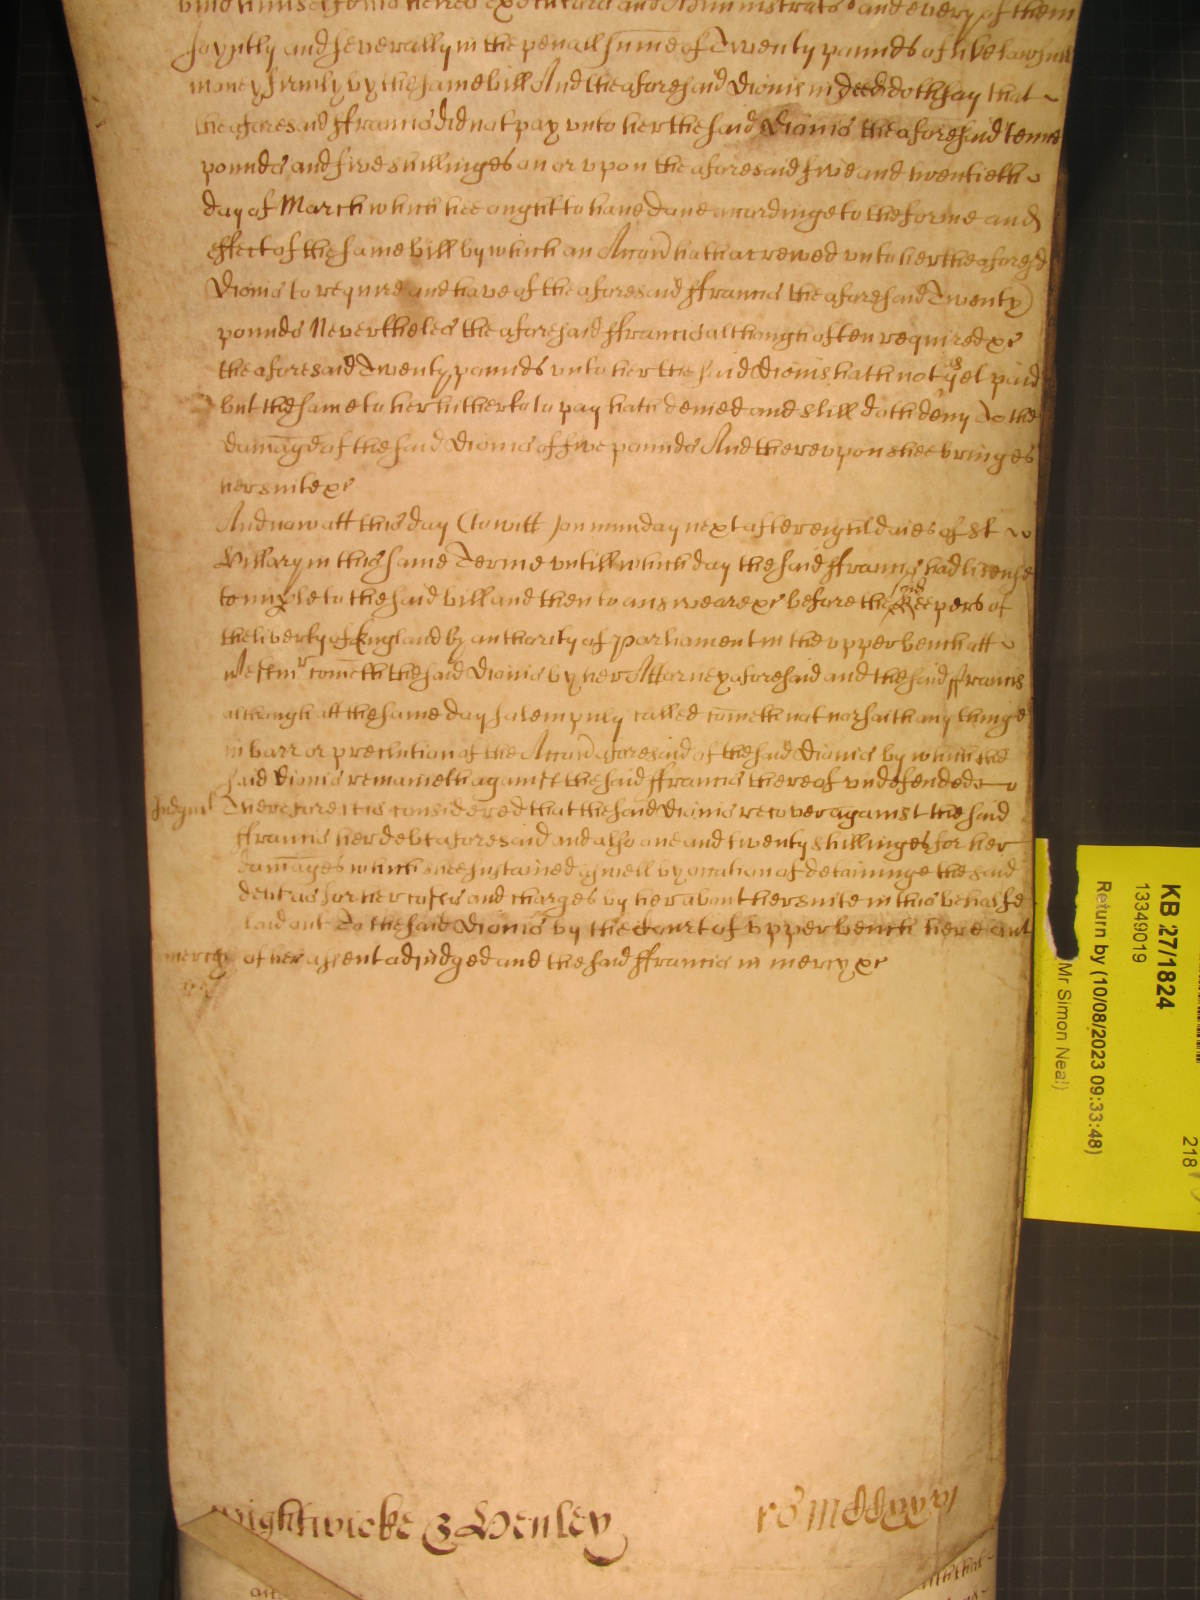 bind himself and his heires executors and Administrators and every of them
Joyntly and severally in the penall summe of Twenty pounds of like lawfull
money firmly by the same bill And the aforesaid Dionis in deed doth say that
the aforesaid ffrancis did not pay unto her the said Dionis the aforesaid tenne
pounds and five shillinges on or upon the aforesaid five and twentieth
day of March which hee ought to have done accordinge to the forme and
effect of the same bill by which an Accon hath accrewed unto her the aforesd
Dionis to require and have of the aforesaid ffrancis the aforesaid Twenty
pounds Neverthelес the aforesaid ffrancis although often required &c
the aforesaid Twenty pounds unto her the said Dionis hath not as yet paid
but the same to her hitherto to pay hath denied and still doth deny To the
damage of the said Dionis of five pounds And thereupon shee bringes
her suite &c
And now att this day (to witt) on munday next after eight daies of St
Hillary in this same Terme untill which day the said ffrancis had license
to imple to the said bill and then to answeare &c before the said Keepers of
the liberty of England by authority of Parliament in the upper bench att
Westmr cometh the said Dionis by her Attorney aforesaid and the said ffrancis
although att the same day solempnly called cometh not nor saith any thinge
in barr or preclution of the Accon aforesaid of the said Dionis by which the
said Dionis remaineth againste the said ffrancis thereof undefended
Judgmt Therefore it is considered that the said Dionis recover against the said
ffrancis her debt aforesaid and also one and twenty shillinges for her
damages which shee sustained aswell by occation of detaininge the said
debt as for her costes and charges by her about her suite in this behalfe
laid out To the said Dionis by the Court of upper bench here
mercy of her assent adjudged and the said ffrancis in mercy &c
Wightwicke & Henley
KB 27/1824
13349019
Return by (10/08/2023 09:33:48)
Mr Simon Neal)
218